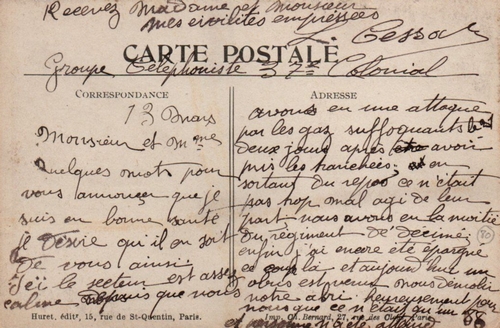 Recevez Madame et Monsieur
mes civilités empressées
Cessa
CARTE POSTALE
Groupe Téléphoniste 37e Colonial
CORRESPONDANCE
13 Mars
Monsieur et Mme
Quelques mots pour
vous annonçer que je
suis en bonne santé
je désire qu'il en soit
de vous ainsi
Içi le secteur est assez
calme depuis que nous
ADRESSE
avons eu une attaque
par les gaz suffoquants les
deux jours après avoir
pris les tranchées, en
sortant du repos ce n'était
pas trop mal agi de leur
part nous avons eu la moitié
du régiment de décimé,
enfin j'ai encore été épargné
ce coup là et aujourd'hui un
obus est venu nous démolir
notre abri heureusement
que ce n'était qu'un
et personne n'a été atteint
68
Huret, editr, 15, rue de St-Quentin, Paris.
Imp. Ch. Bernard, 27, rue des Cloÿs, Paris